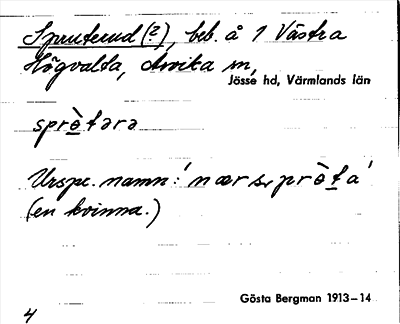 Spruterud (?), beb. å 1 Västra
Högvalta, Arvika sn,
Jösse hd, Värmlands län
sprὸ̲tərə
Urspr. namn: 'nær s prὸ̲ta'
(en kvinna.)
Gösta Bergman 1913–14
4